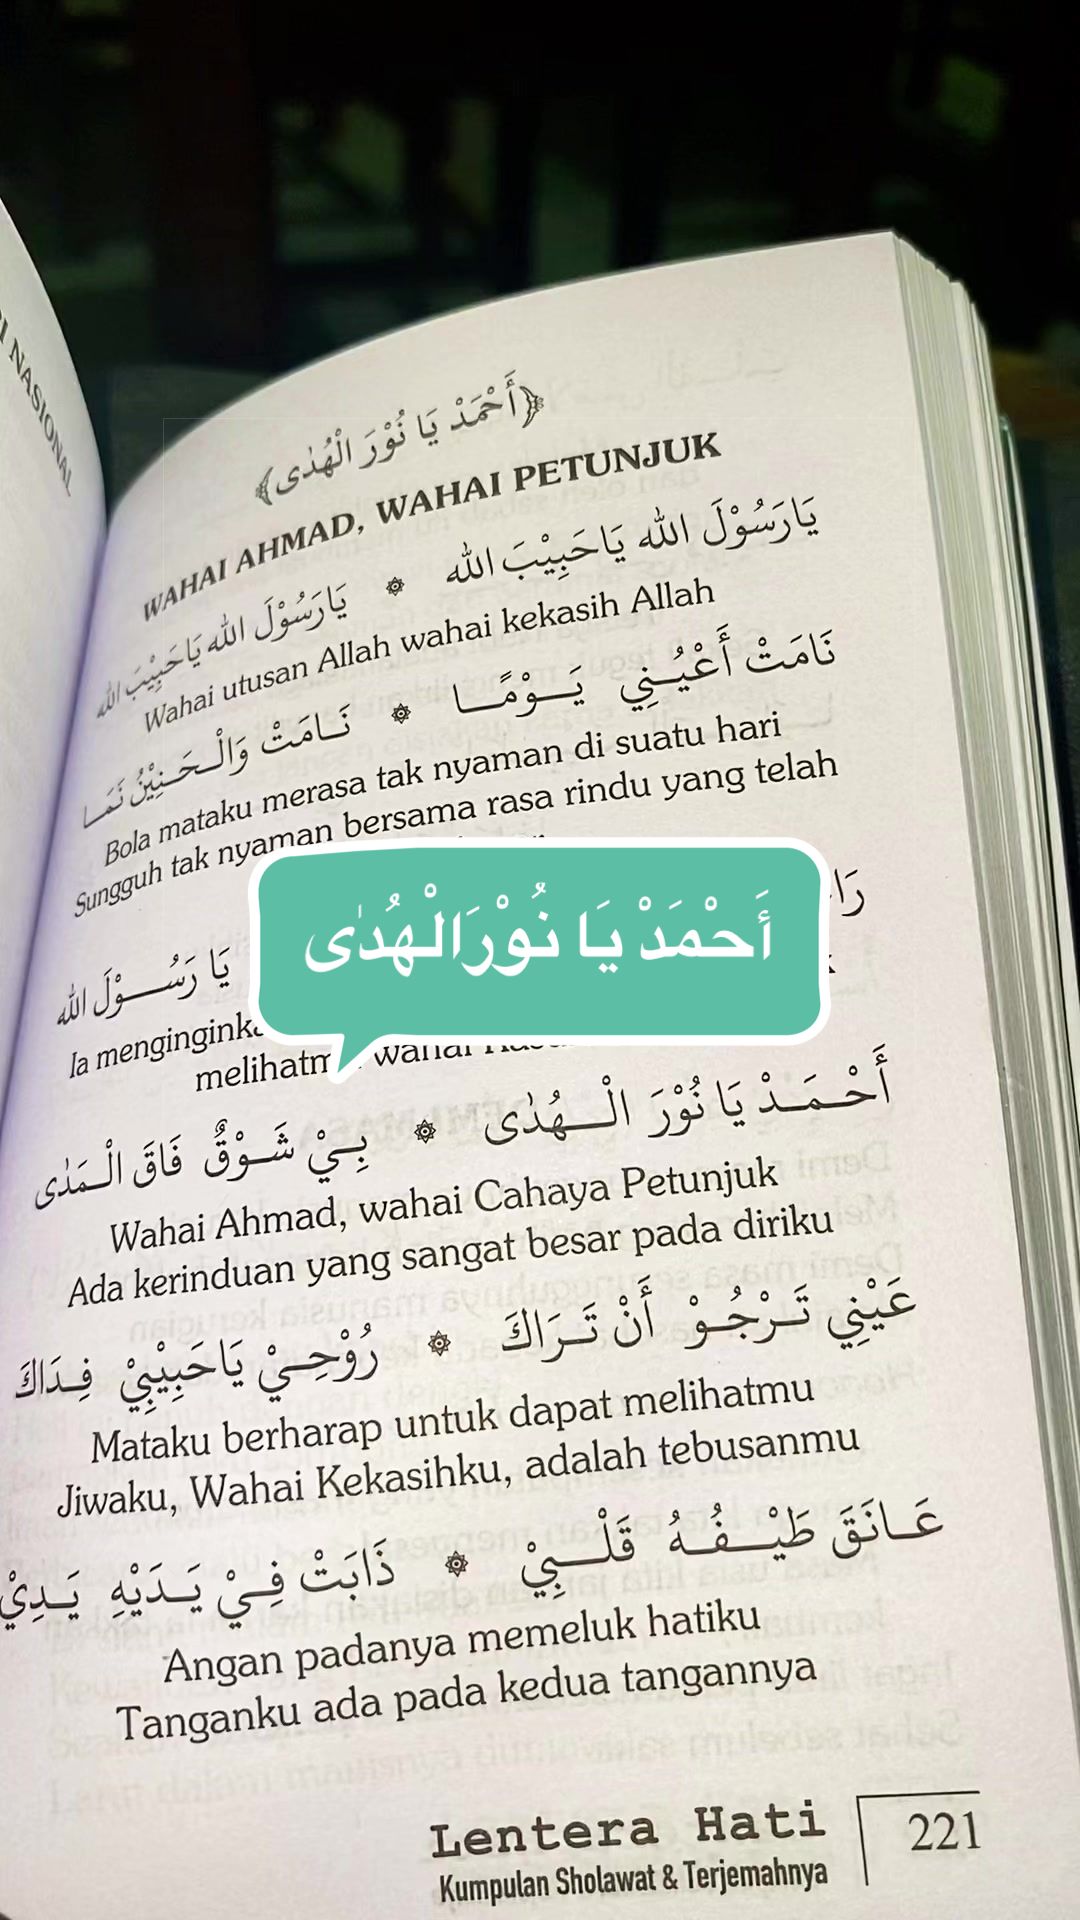 I NASIONAL
﴿أَحْمَدْ يَا نُوْرَ الْهُدٰى﴾
WAHAI AHMAD, WAHAI PETUNJUK
يَارَسُوْلَ الله يَاحَبِيْبَ الله ۞ يَارَسُوْلَ الله يَاحَبِيْبَ الله
Wahai utusan Allah wahai kekasih Allah
نَامَتْ أَعْيُنِي يَوْمًا ۞ نَامَتْ وَالْحَنِيْنُ نَمَا
Bola mataku merasa tak nyaman di suatu hari
Sungguh tak nyaman bersama rasa rindu yang telah
أَحْمَدْ يَا نُوْرَالْهُدٰى
يَا رَسُوْلَ الله
Ia menginginka
melihatm wahai
أَحْمَدْ يَا نُوْرَ الْهُدٰى ۞ بِيْ شَوْقٌ فَاقَ الْمَدٰى
Wahai Ahmad, wahai Cahaya Petunjuk
Ada kerinduan yang sangat besar pada diriku
عَيْنِي تَرْجُوْ أَنْ تَرَاكَ ۞ رُوْحِيْ يَاحَبِيْبِيْ فِدَاكَ
Mataku berharap untuk dapat melihatmu
Jiwaku, Wahai Kekasihku, adalah tebusanmu
عَانَقَ طَيْفُهُ قَلْبِيْ ۞ ذَابَتْ فِيْ يَدَيْهِ يَدِيْ
Angan padanya memeluk hatiku
Tanganku ada pada kedua tangannya
Lentera Hati
Kumpulan Sholawat & Terjemahnya
221